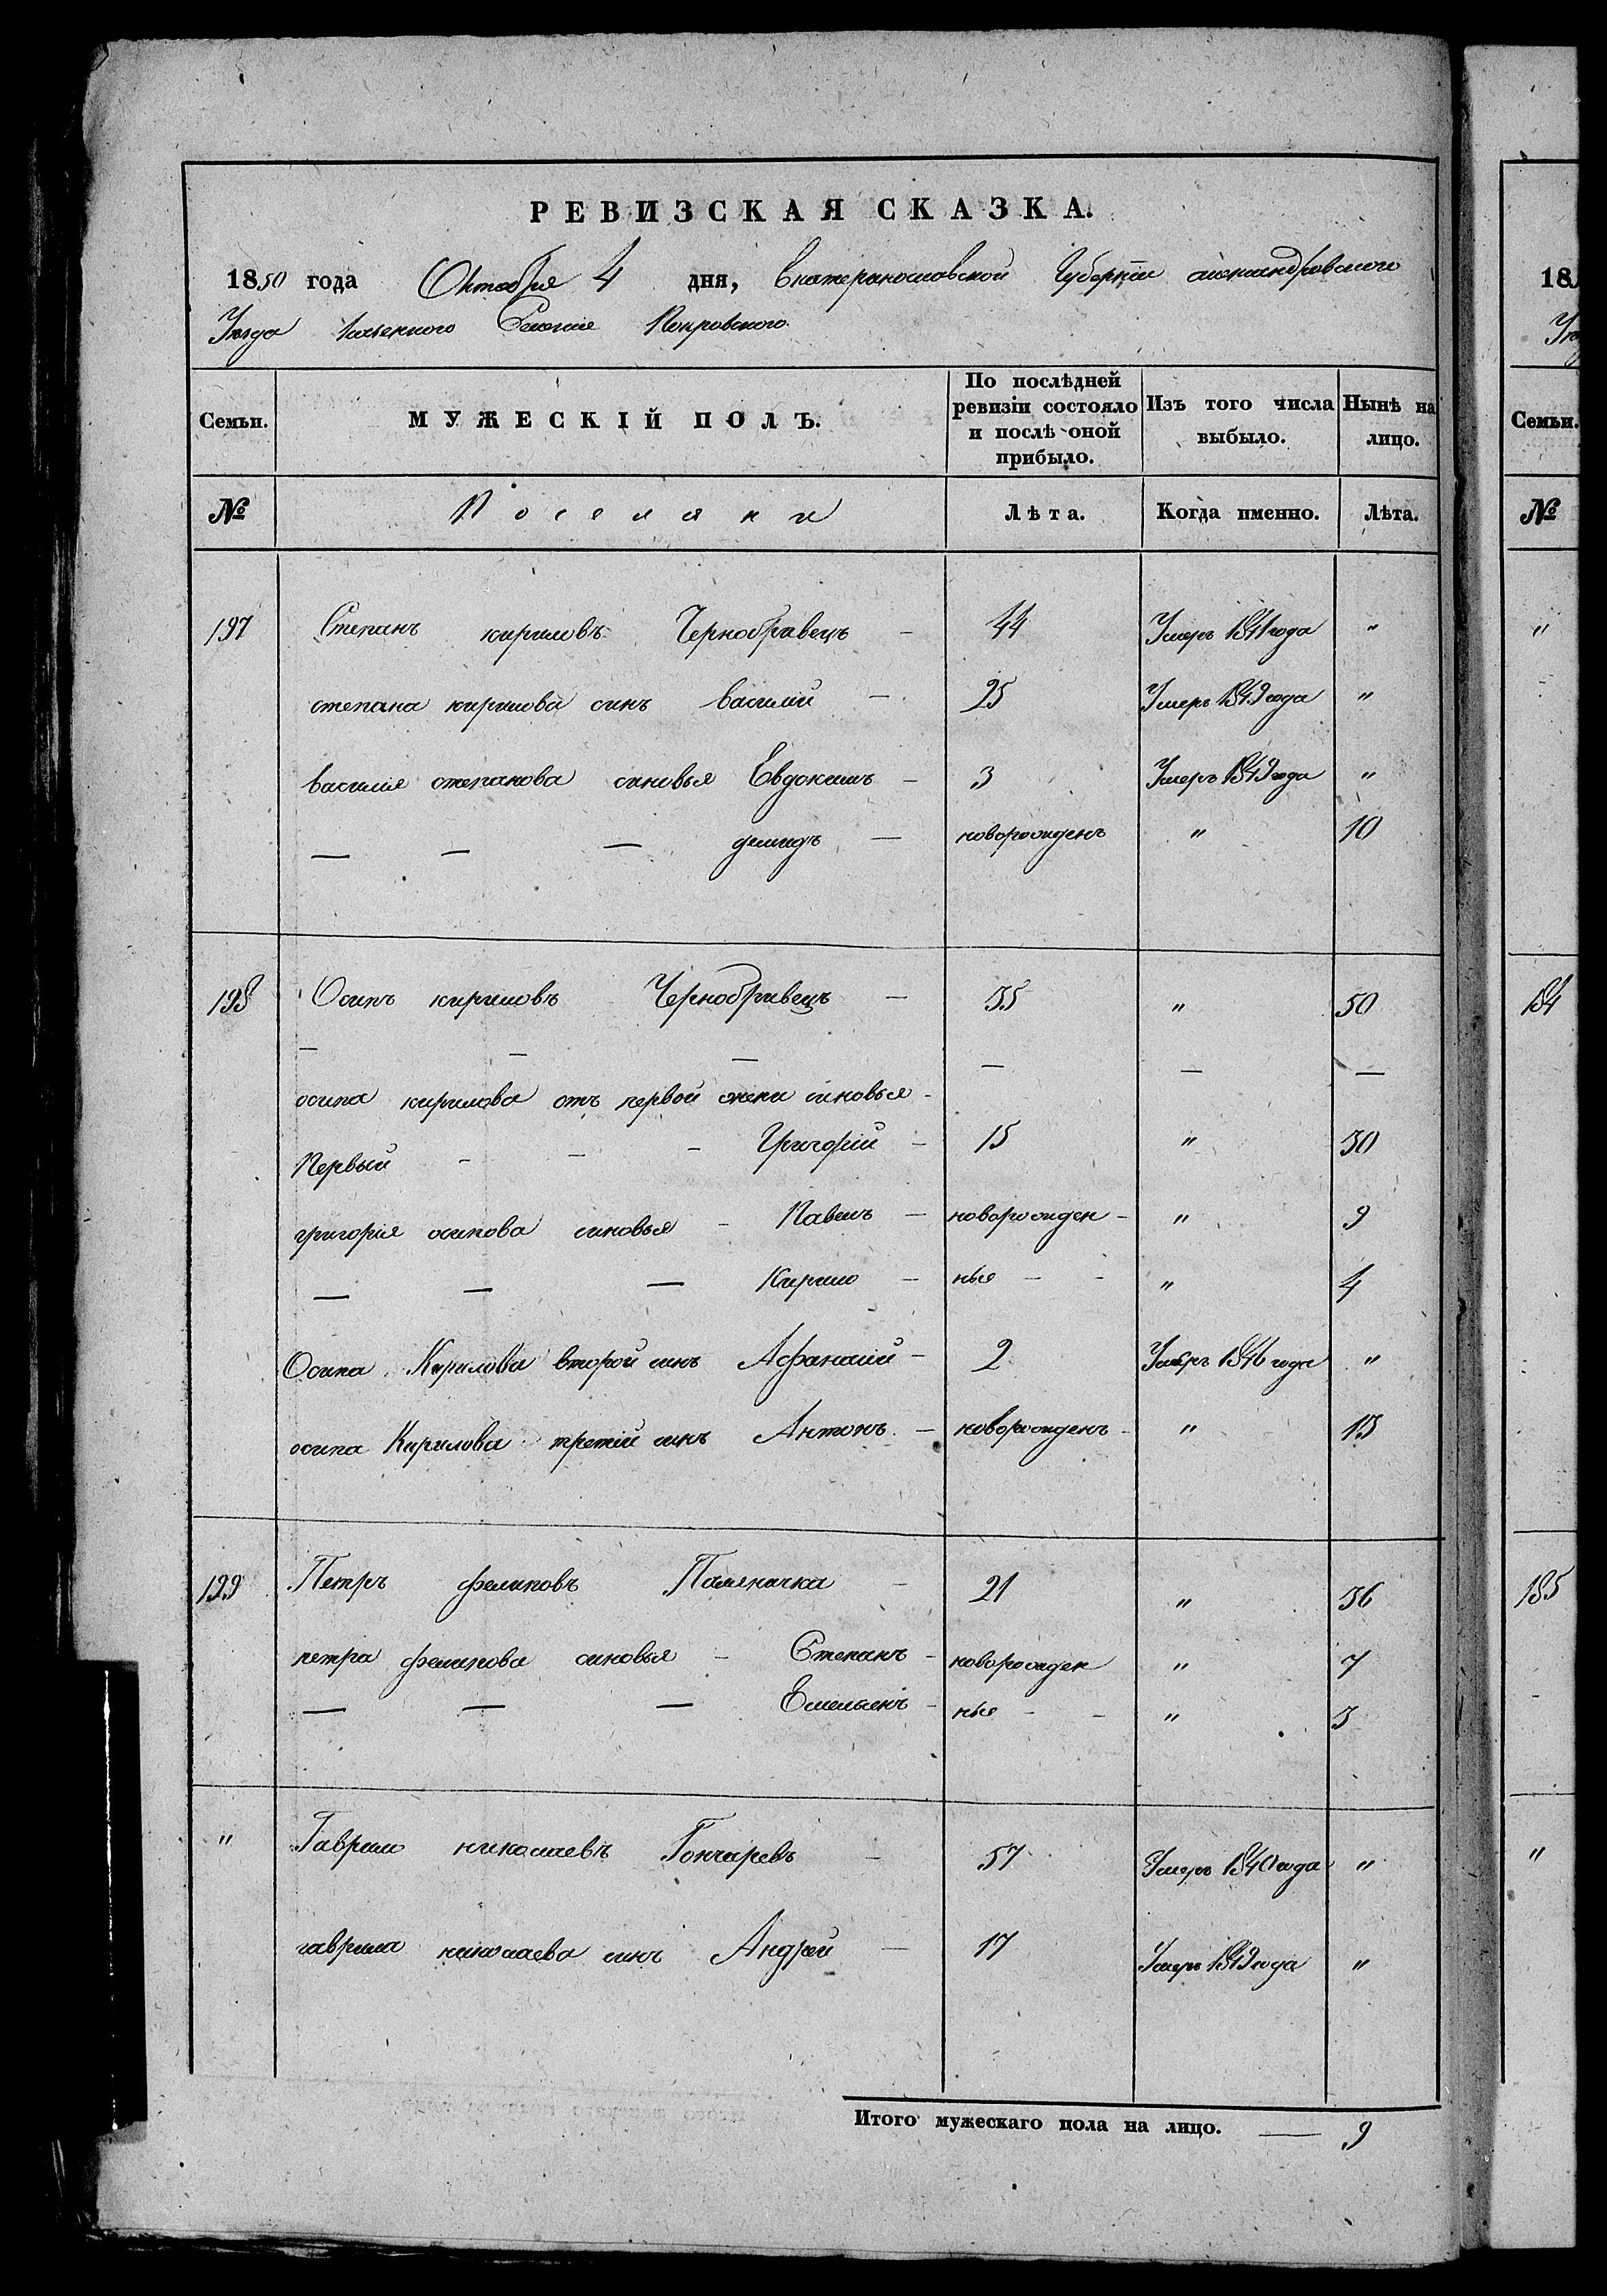 РЕВИЗСКАЯ СКАЗКА.
1850 года Октября 4 дня, Екатеринославской Губернiи александровского
Уезда Селения Покровского.
Семьи. МУЖЕСКIЙ ПОЛЪ. По послѣдней ревизiи состояло и послѣ оной прибыло. Изъ того числа выбыло. Нынѣ на лицо.
№ Поселяни Лѣта. Когда именно. Лѣта.
197 Степанъ кириловъ Чернобривецъ — 44 Умеръ 1841 года "
степана кирилова синъ василий — 25 Умеръ 1849 года "
василия степанова синовья Евдокимъ — 3 Умеръ 1849 года "
— — — демидъ — новорожденъ " 10
198 Осипъ кириловъ Чернобривецъ — 35 " 50
— — — — — —
осипа кирилова отъ первой жени синовья -
Первый - - - Григорiй - 15 " 30
григория осипова синовья - Павелъ - новорожден - " 9
— — — Кирило - ныя - - " 4
Осипа Кирилова второй синъ Афанасий - 2 Умеръ 1846 года "
осипа Кирилова третiй синъ Антонъ - новорожденъ - " 13
199 Петръ филиповъ Паляничка - 21 " 36
петра филипова синовья - Степанъ - новорожден " 7
— — — Емельянъ - ныя - - " 3
" Гаврило николаевъ Гончаревъ - 57 Умеръ 1840 года "
гаврила николаева синъ Андрей — 17 Умеръ 1849 года "
Итого мужескаго пола на лицо. — 9
18
Семьи.
№
"
184
185
"